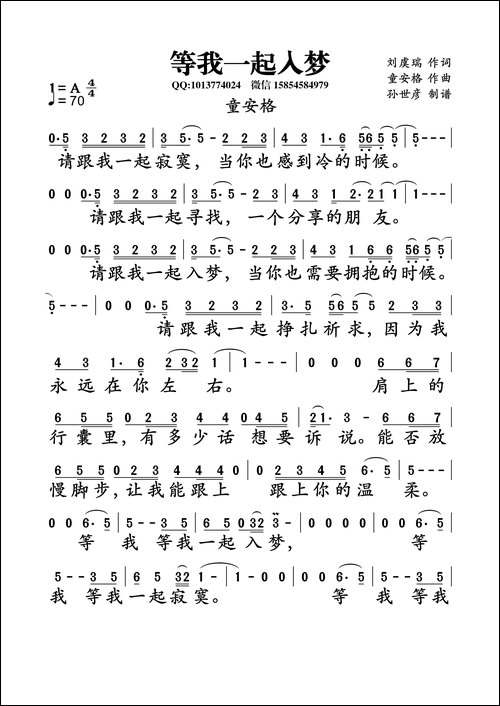 等我一起入梦
QQ:1013774024 微信 15854584979
童安格
刘虞瑞 作词
童安格 作曲
孙世彦 制谱
1=A 4/4
♩=70
0·5 3 2 3 2 | 3 5·5 - 2 | 4 3 1·6 5 6 5 5 | 5 - - -
请跟我一起寂寞，当你也感到冷的时候。
0 0 0·5 | 3 2 3 2 | 3·5 5 - 2 3 | 4 3 1 2·2 1 1 | 1 - - - |
请跟我一起寻找，一个分享的朋友。
0 0 0·5 | 3 2 3 2 | 3·5 5 - 2 3 | 4 3 1 6 6 5 6 5 5 |
请跟我一起入梦，当你也需要拥抱的时候。
5 - - - | 0 0 0·5 | 3 2 3 2 | 3·5 5 6 5 5 2 3 3 |
请跟我一起挣扎祈求，因为我
4 3 1·6 2 3 2 1 | 1 - - - | 0 0 0 6 6 7 |
永远在你左右。肩上的
6 5 5 0 2 3 4 4 0 4 5 | 2 1·3· - 6 6 7 |
行囊里，有多少话想要诉说。能否放
6 5 5 0 2 3 4 4 0 0 4 4 0 | 5 5 5 6· 5 5 - - - |
慢脚步，让我能跟上 跟上你的温柔。
0 0 6·5 | 5 - - 3 5 | 6 5 0 3 2 3 - | 0 0 0 0 | 0 0 6·5 |
等 我 等我一起入梦， 等
5 - - 3 5 | 6 5 3 2 1 - | 1 - - - | 0 0 6·5 5 - - 3 5 |
我 等我一起寂寞。 等 我 等我